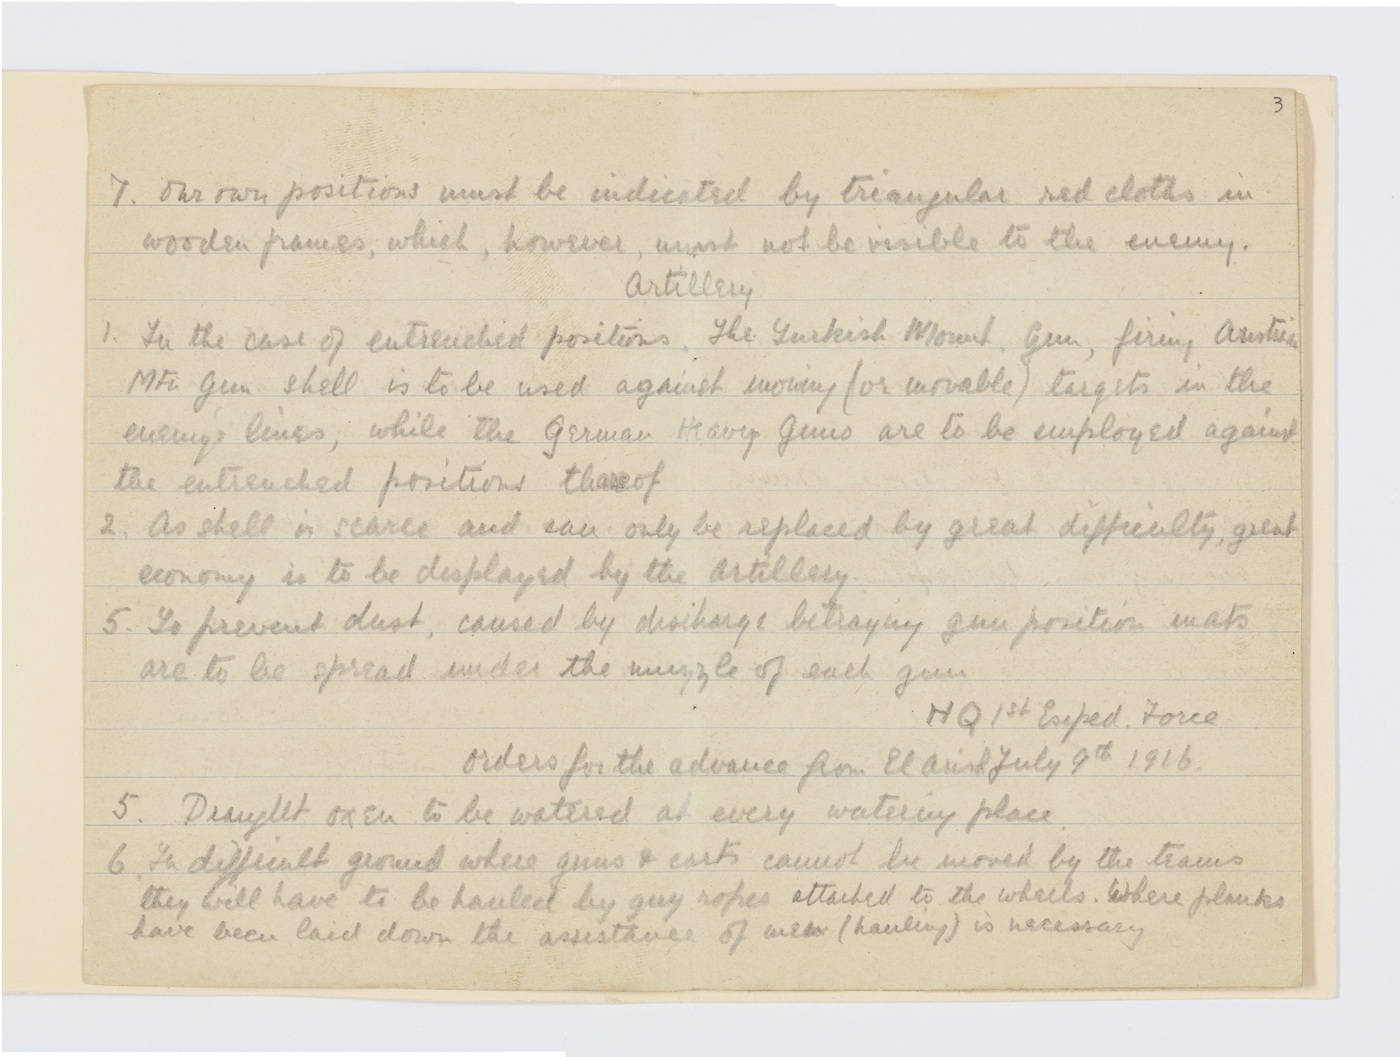 3
7. Our own positions must be indicated by triangular red cloths in
wooden frames, which, however, must not be visible to the enemy.
Artillery
1. In the case of entrenched positions. The Turkish Mount. Gun, firing Austrian
Mtn Gun shell is to be used against moving (or movable) targets in the
enemy's lines, while the German Heavy Guns are to be employed against
the entrenched positions thereof
2. As shell is scarce and can only be replaced by great difficulty, great
economy is to be displayed by the Artillery
5. To prevent dust, caused by discharge betraying gun position mats
are to be spread under the muzzle of each gun
HQ 1st Exped. Force
Orders for the advance from El Arish July 9th 1916.
5. Draught oxen to be watered at every watering place.
6. In difficult ground where guns & carts cannot be moved by the teams
they will have to be hauled by guy ropes attached to the wheels. Where planks
have been laid down the assistance of men (hauling) is necessary